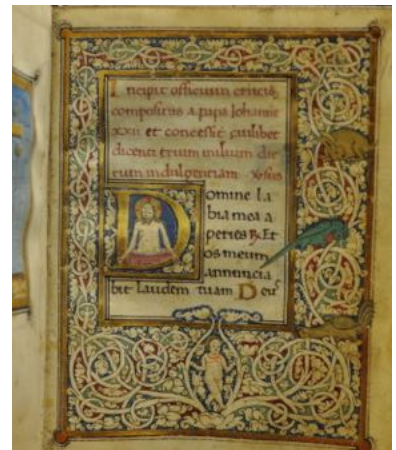 Incipit officium crucis,
compositus a papa Iohanne
XXII et concessit cuilibet
dicenti trium milium die
rum indulgentiam.
Domine la
bia mea a
peries Et
os meum
annuncia
bit laudem tuam Deus